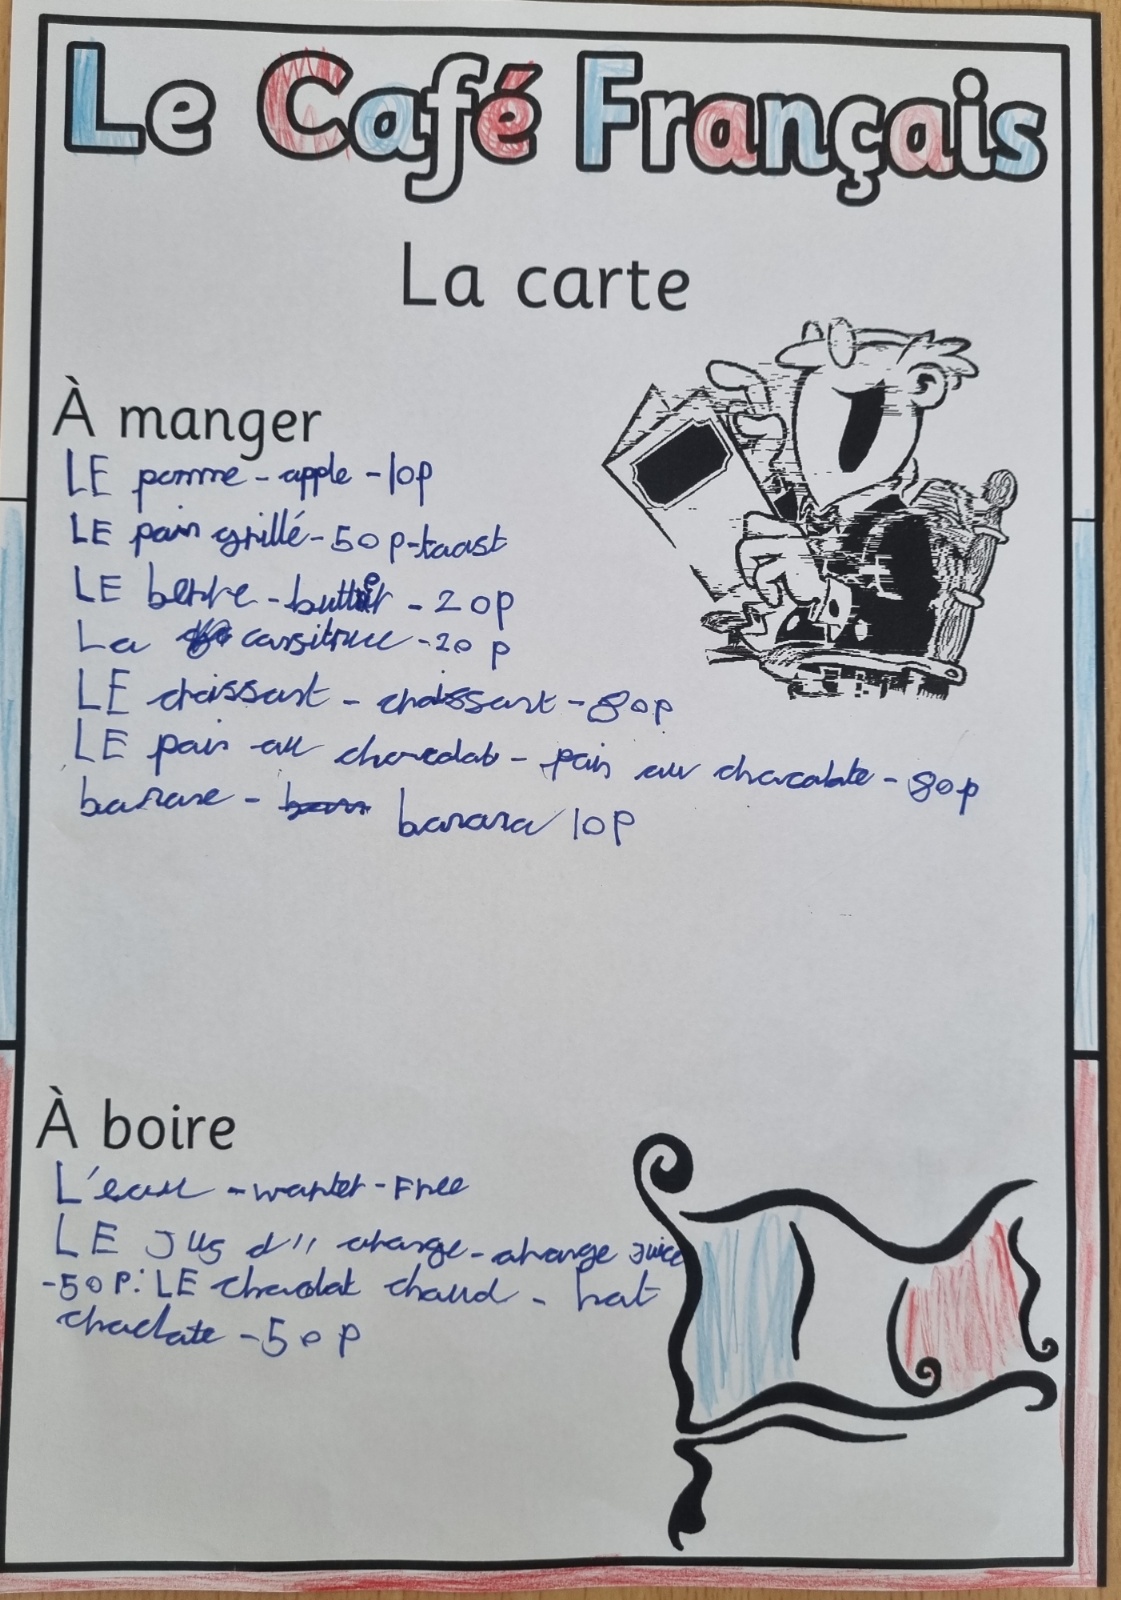 Le Café Français
La carte
À manger
LE pomme - apple - 10p
LE pain grillé - 50p - toast
LE berre - butter - 20p
La - 20 p
LE croissant - croissant - 80p
LE pain au chocolat - pain au chocalate - 80p
banane - banana 10p
À boire
L'eau - warter - Free
LE Jus d'' orange - orange juice
- 50P. LE chocolat chaud - hot
choclate - 50p